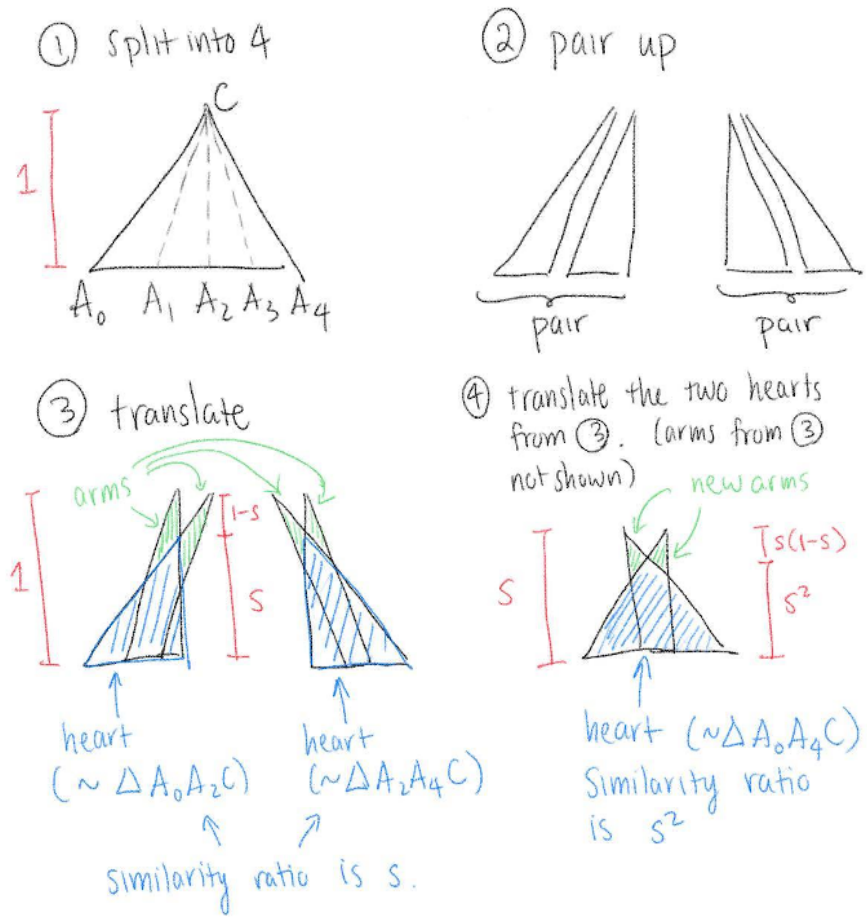 ① split into 4
C
1
A₀ A₁ A₂ A₃ A₄
② pair up
pair pair
③ translate
arms
1
1-s
s
heart
(~ΔA₀A₂C)
heart
(~ΔA₂A₄C)
similarity ratio is s.
④ translate the two hearts
from ③. (arms from ③
not shown)
new arms
s
s(1-s)
s²
heart (~ΔA₀A₄C)
Similarity ratio
is s²